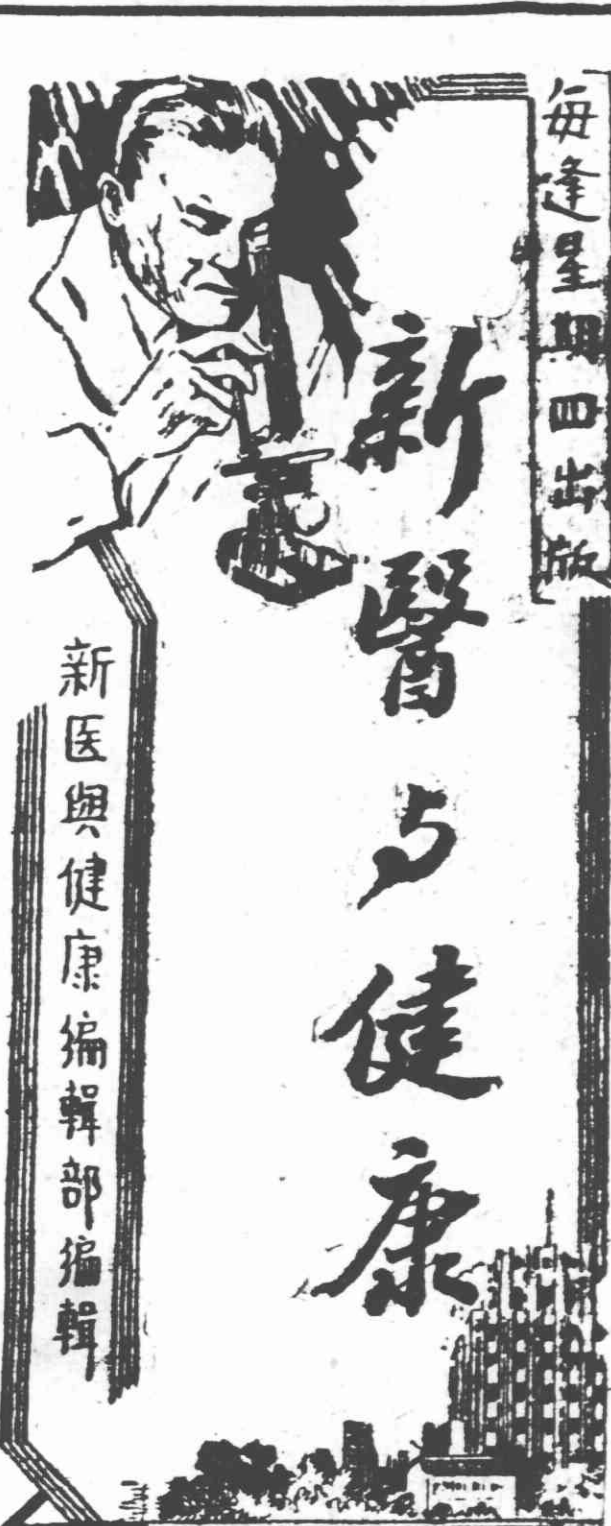 每逢星期四出版
新醫与健康
新医與健康编輯部编輯